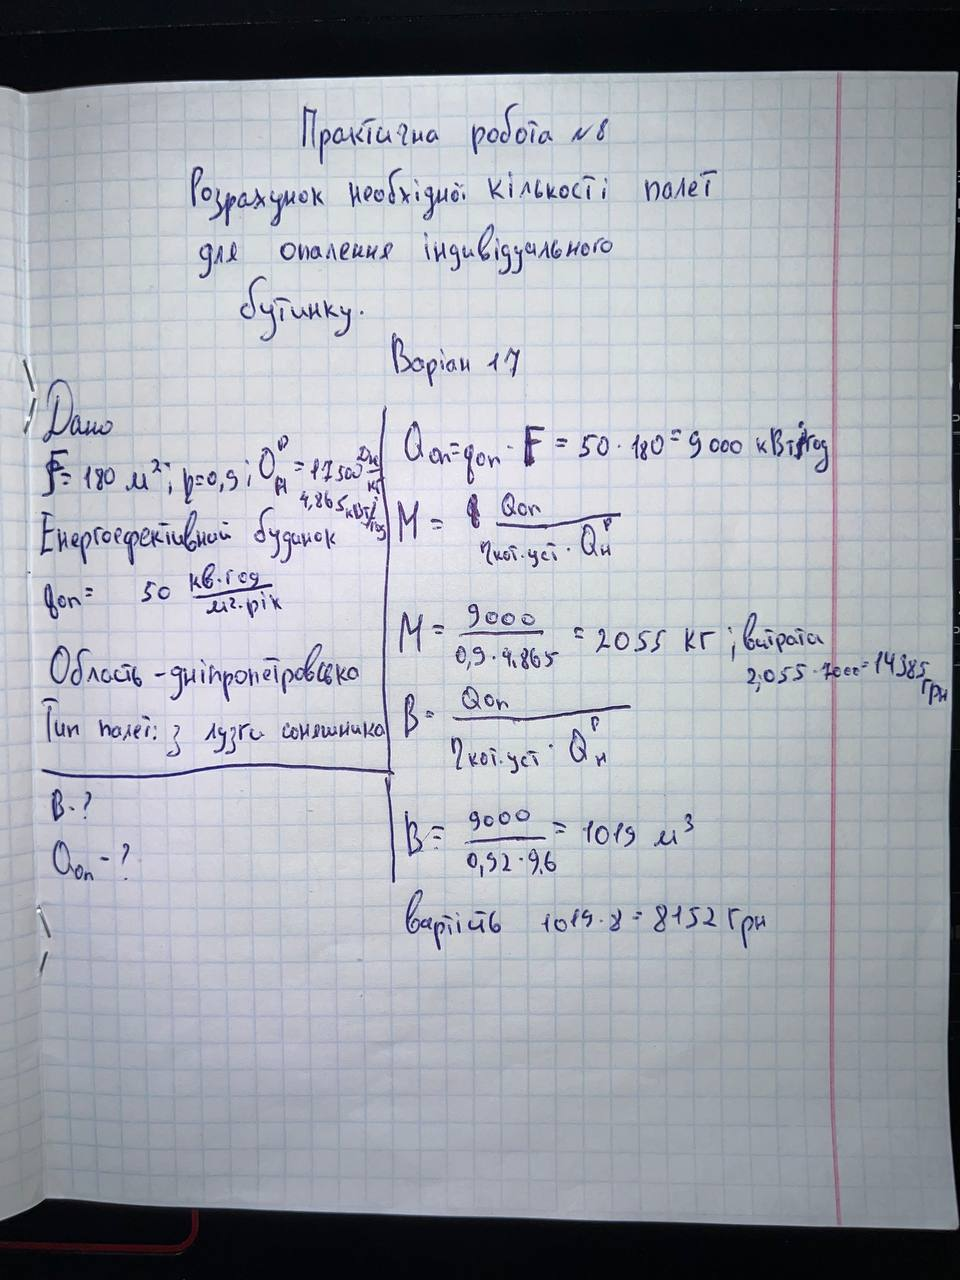 Практична робота №8
Розрахунок необхідної кількості палет
для опалення індивідуального
бутинку.
Варіан 17
Дано
F= 180 м²; η=0,9; Qнᴾ = 17500 Дж/кг
4,865 кВт/год
Енергоефективний будинок
qоп= 50 кв.год/м².рік
Область - дніпропетровська
Тип палет: з лузги соняшника
В-?
Qоп - ?
Qоп = qоп · F = 50 · 180 = 9 000 кВт/год
М = Qоп / ηкот.уст · Qнᴾ
М = 9000 / 0,9 · 4,865 = 2055 кг ; витрата
2,055 · 7000 = 14385 грн
В = Qоп / ηкот.уст · Qнᴾ
В = 9000 / 0,92 · 9,6 = 1019 м³
вартість 1019 · 8 = 8152 грн